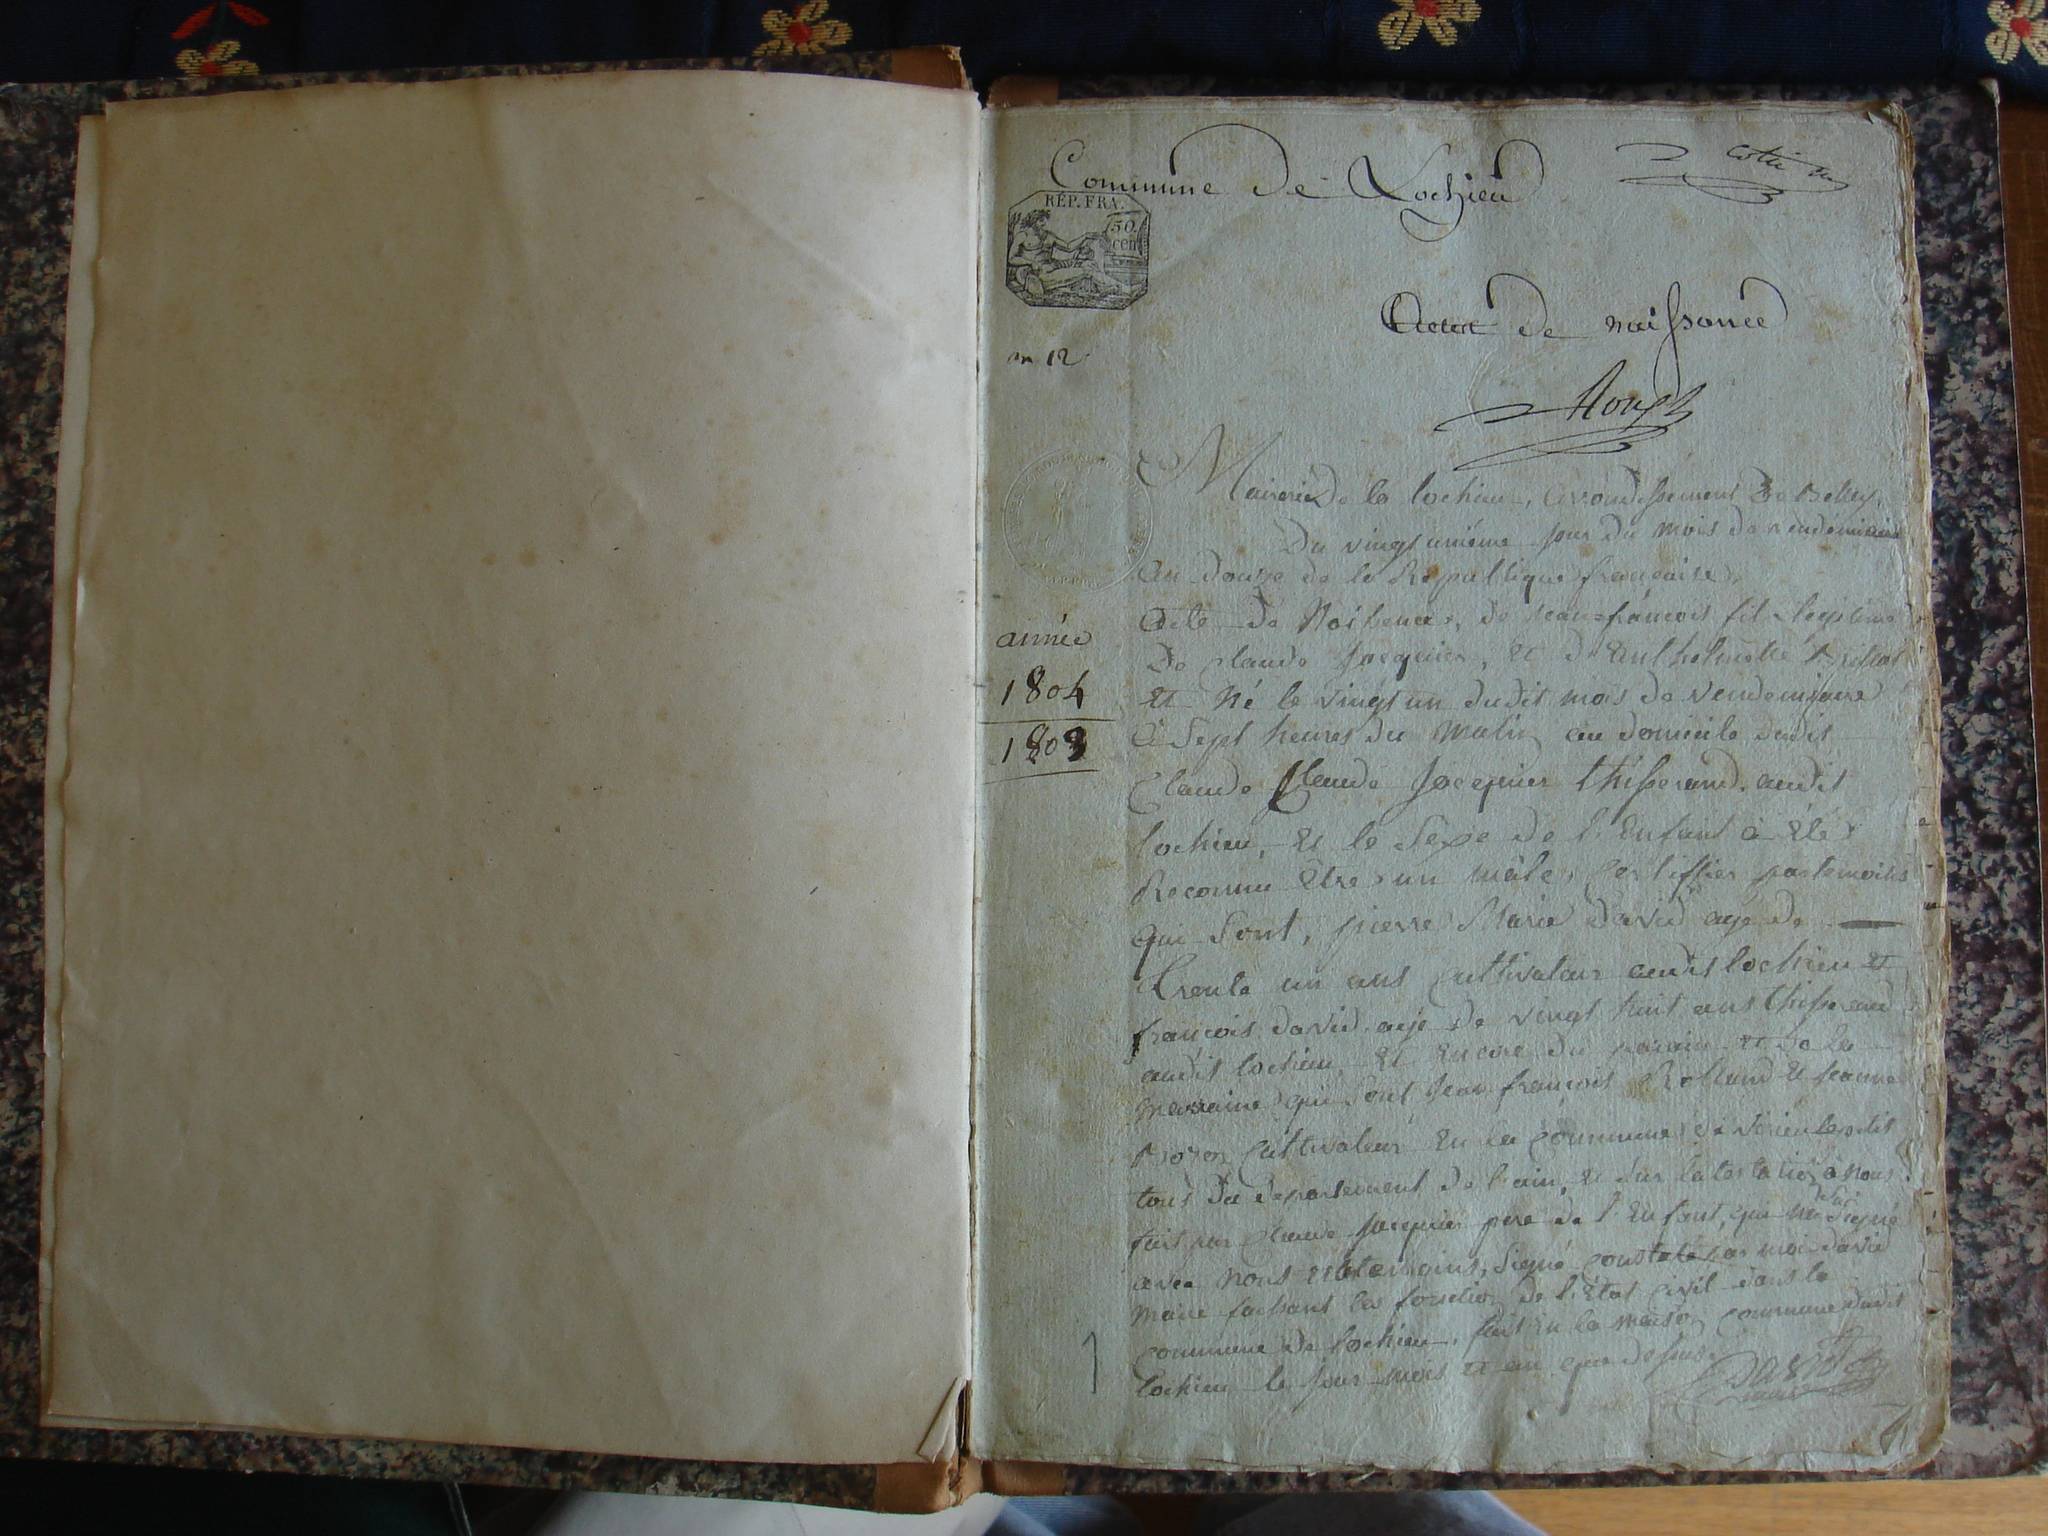 Commune de Lochieu
RÉP. FRA.
50
cen
an 12
Acte de naissance
Mairie de la lochieu, arondissement de Belley,
Du vingt unième jour du mois de vendemiaire
an douze de la Republique françaises,
année
1804
1803
acte de Naisance, de Jean francois fil legitime
de Claude Jocquier, et d'Anthelmette
et né le vingt un dudit mois de vendemiaire
à Sept heures du matin au domicile dudit
Claude Claude Jocquier thisserand audit
lochieu, et le Sexe de l'Enfant à été
Reconnu Être un mâle, Certiffier par temoins
qui Sont, pierre Marie David agé de
trente un ans Cultivateur audit lochieu et
francois david agé de vingt huit ans thisserand
audit lochieu, et Encore du parain et de la
marraine qui Sont Jean francois Rolland et Jeanne
Cultivateur En la commune de
tous du departement de l'ain, et sur à nous
fait par Claude Jocquier pere de l'Enfant, qui
avec nous et temoins, Signé constaté par moi david
maire faisant les fonction de l'État Civil dans la
commune de lochieu, fait en la maison commune dudit
lochieu le jour mois et an que dessus
David
maire